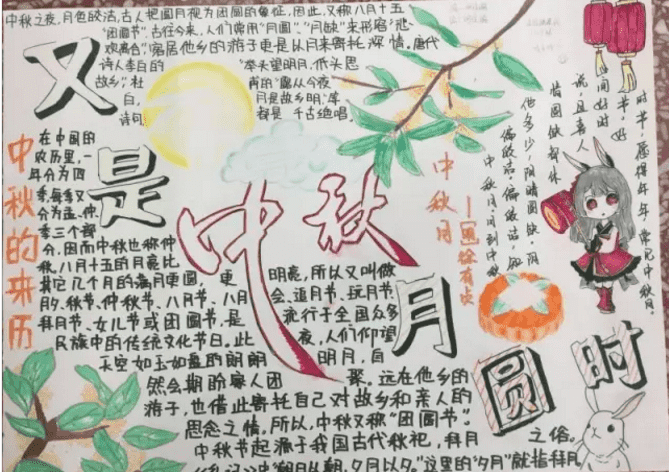 中秋之夜,月色皎洁,古人把圆月视为团圆的象征,因此,又称八月十五
"团圆节"。古往今来,人们常用"月圆"、"月缺"来形容"悲
欢离合",客居他乡的游子更是以月来寄托深情。唐代
诗人李白的"举头望明月,低头思
故乡",杜甫的"露从今夜
白,月是故乡明"等
诗句都是千古绝唱
又是中秋月圆时
中秋的来历
在中国的
农历里,一
年分为四
季,每季又
分为孟、仲、
季三个部
分,因而中秋也称仲
秋,八月十五的月亮比
其它几个月的满月更圆,更明亮,所以又叫做
月夕、秋节、仲秋节、八月节、八月会、追月节、玩月节、
拜月节、女儿节或团圆节,是流行于全国众多
民族中的传统文化节日。此夜,人们仰望
天空如玉如盘的朗朗明月,自
然会期盼家人团聚。远在他乡的
游子,也借此寄托自己对故乡和亲人的
思念之情。所以,中秋又称"团圆节"。
中秋节起源于我国古代秋祀,拜月之俗。
朝日以朝,夕月以夕。"这里的"夕月"就指拜月
中秋月
中秋月。月到中秋
偏皎洁。偏皎洁,知
他多少,阴晴圆缺。阴
晴圆缺都休
说,且喜人
间好时
节。好
时节,愿得年年,常见中秋月。